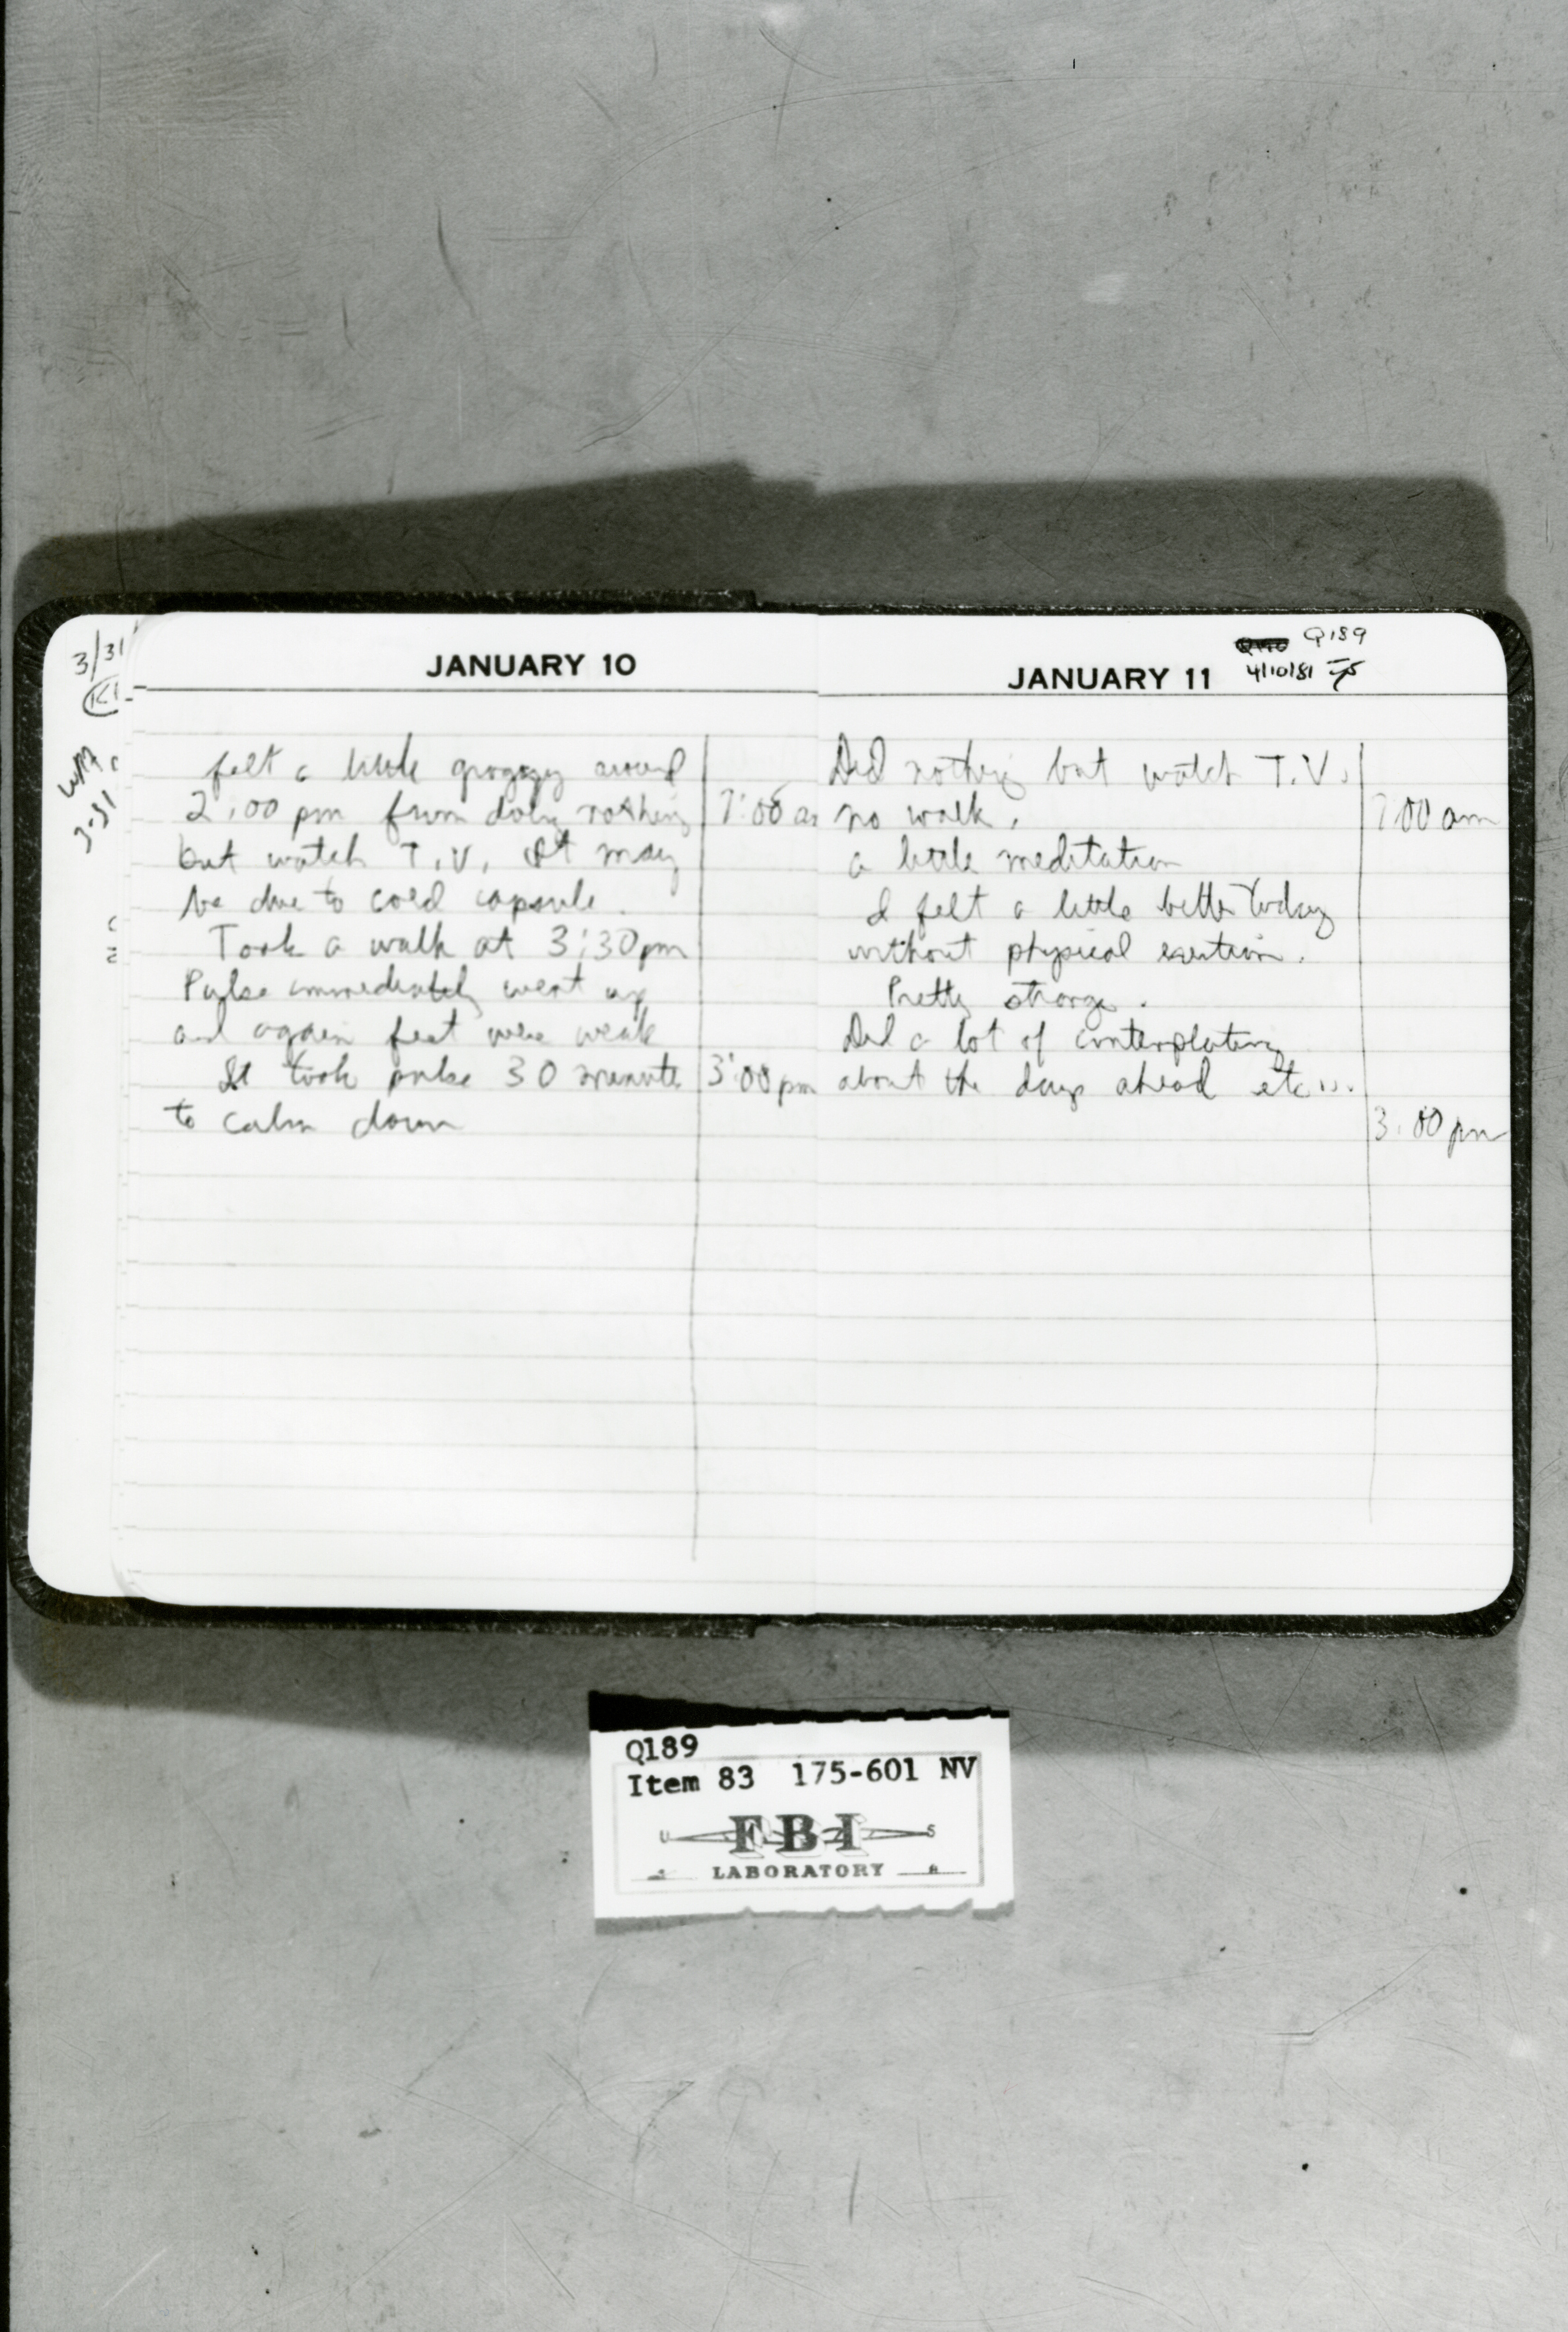 3/31
JANUARY 10
felt a little groggy around
2:00 pm from doing nothing
but watch T.V. It may
be due to cold capsule.
Took a walk at 3:30pm
Pulse immediately went up
and again feet were weak
It took pulse 30 minutes
to calm down
7:00 a
3:00 pm
3-31
JANUARY 11
Q189
4/10/81
Did nothing but watch T.V.
no walk.
a little meditation
I felt a little better today
without physical exertion.
Pretty strange.
Did a lot of contemplating
about the days ahead etc...
7:00 am
3:00 pm
Q189
Item 83 175-601 NV
U FBI S
LABORATORY